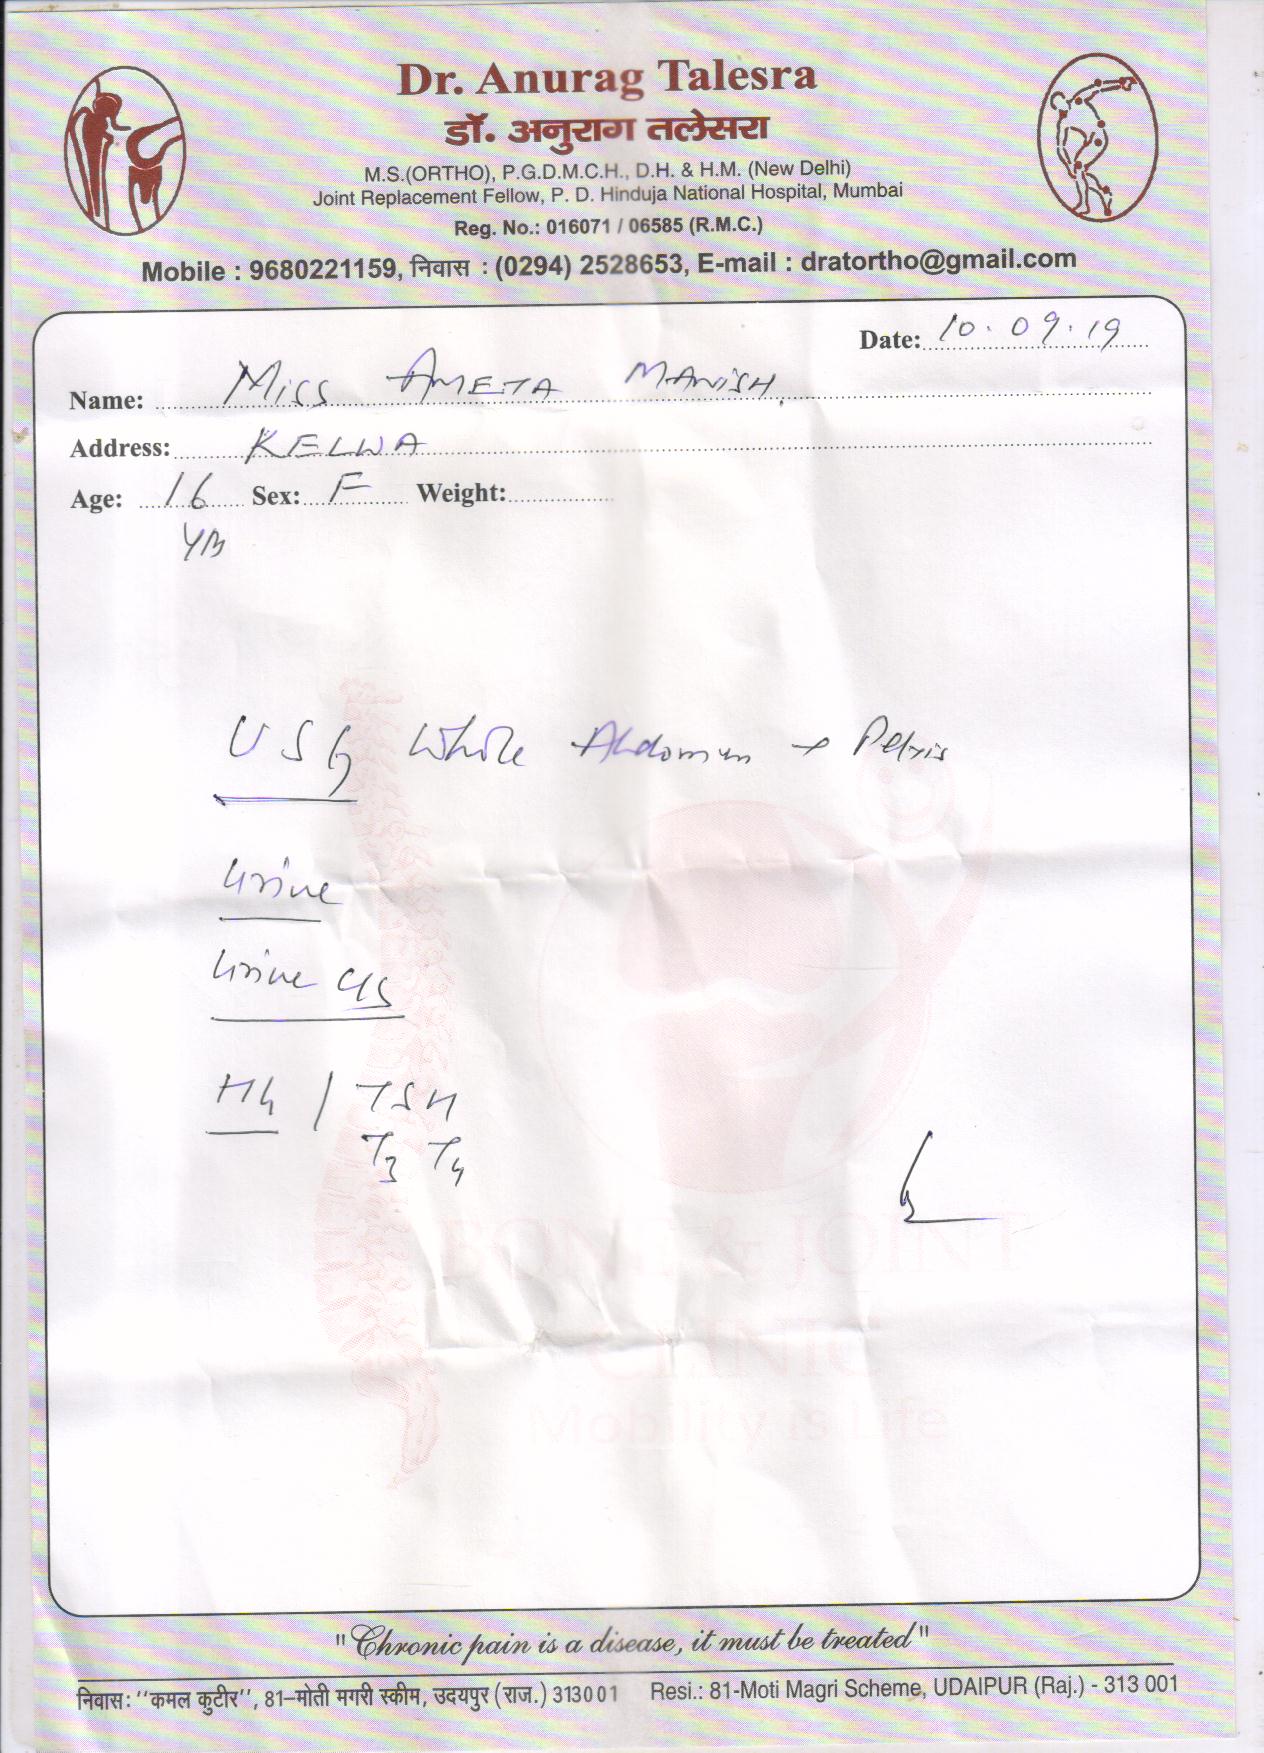 Dr. Anurag Talesra
डॉ. अनुराग तलेसरा
M.S.(ORTHO), P.G.D.M.C.H., D.H. & H.M. (New Delhi)
Joint Replacement Fellow, P. D. Hinduja National Hospital, Mumbai
Reg. No.: 016071 / 06585 (R.M.C.)
Mobile : 9680221159, निवास : (0294) 2528653, E-mail : dratortho@gmail.com
Date: 10.09.19
Name: Miss AMETA MANISH
Address: KELWA
Age: 16 Sex: F Weight:
USG Whole Abdomen + Pelvis
Urine
Urine C/S
Hb / TSH
T3 T4
BONE & JOINT
CLINIC
Mobility is Life
"Chronic pain is a disease, it must be treated"
निवास: ''कमल कुटीर'', 81–मोती मगरी स्कीम, उदयपुर (राज.) 313001 Resi.: 81-Moti Magri Scheme, UDAIPUR (Raj.) - 313 001